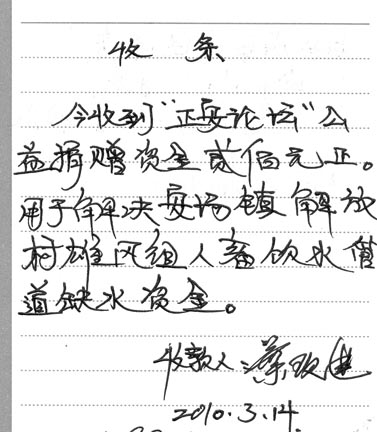 收条
今收到"正安论坛"公
益捐赠资金贰佰元正。
用于解决安场镇解放
村雄风组人畜饮水管
道缺水资金。
收款人：蔡
2010.3.14.